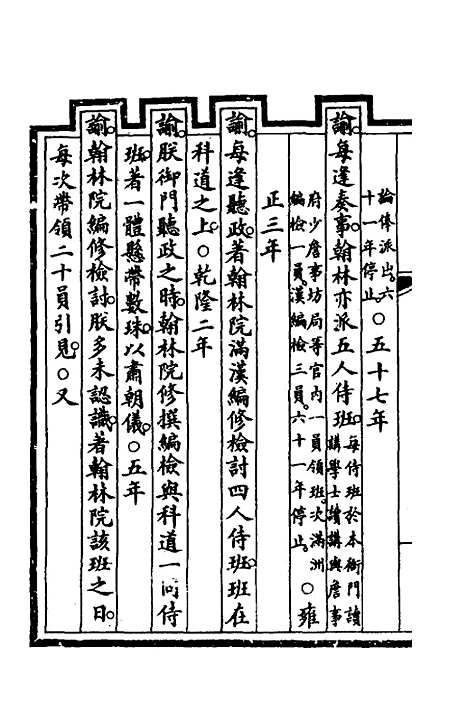 論俸派出。六
十一年停止
○五十七年
諭。每逢奏事。翰林亦派五人侍班。
每侍班於本衙門讀
講學士讀講與詹事
府少詹事坊局等官內一員領班。次滿洲
編檢一員。漢編檢三員。六十一年停止。
○雍
正三年
諭。每逢聽政。著翰林院滿漢編修檢討四人侍班。班在
科道之上。○乾隆二年
諭。朕御門聽政之時。翰林院修撰編檢與科道一同侍
班。著一體懸帶數珠。以肅朝儀。○五年
諭。翰林院編修檢討。朕多未認識。著翰林院該班之日。
每次帶領二十員引見。○又